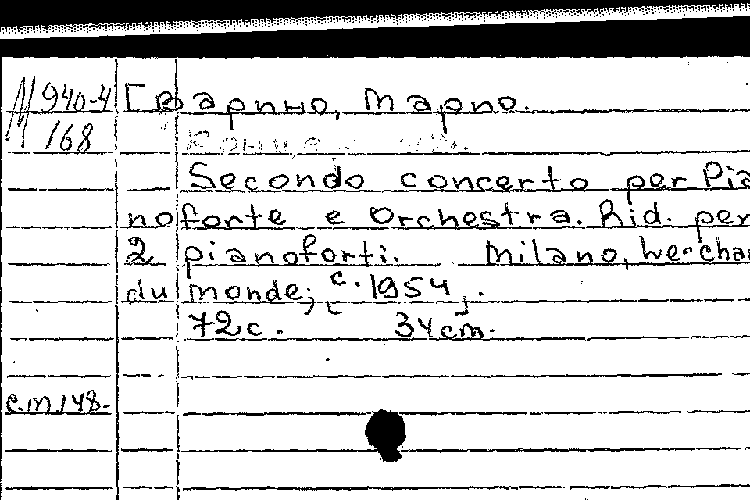 М 940-4 Гварино, Марио.
168
Secondo concerto per Pia
noforte e Orchestra. Rid. per
2 pianoforti. Milano,
du monde, [c. 1954].
72 c. 34 cm.